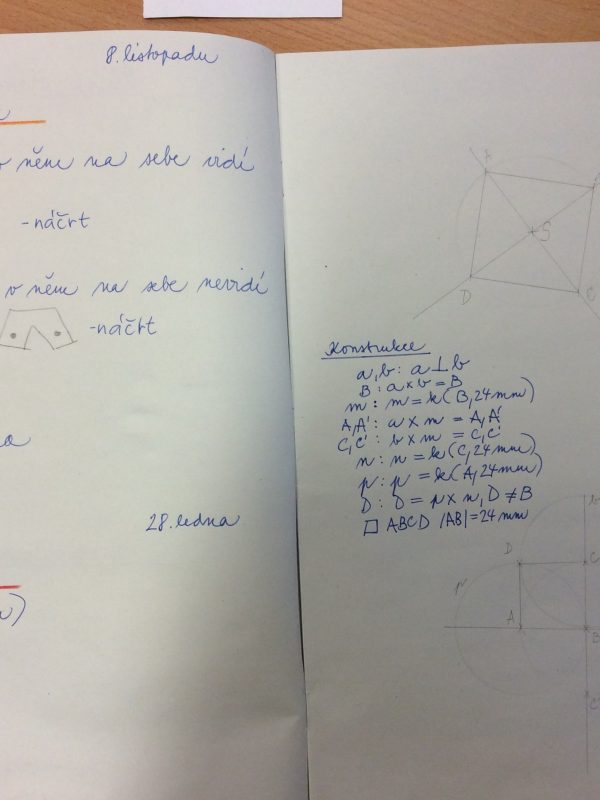 8. listopadu
v něm na sebe vidí
-náčrt
v něm na sebe nevidí
-náčrt
28. ledna
A
S
D
C
Konstrukce
a, b: a ⊥ b
B: a × b = B
m: m = k(B, 24 mm)
A, A': a × m = A, A'
C, C': b × m = C, C'
n: n = k(C, 24 mm)
p: p = k(A, 24 mm)
D: D = p × n, D ≠ B
□ ABCD |AB| = 24 mm
b
D
C
p
A
B
C'